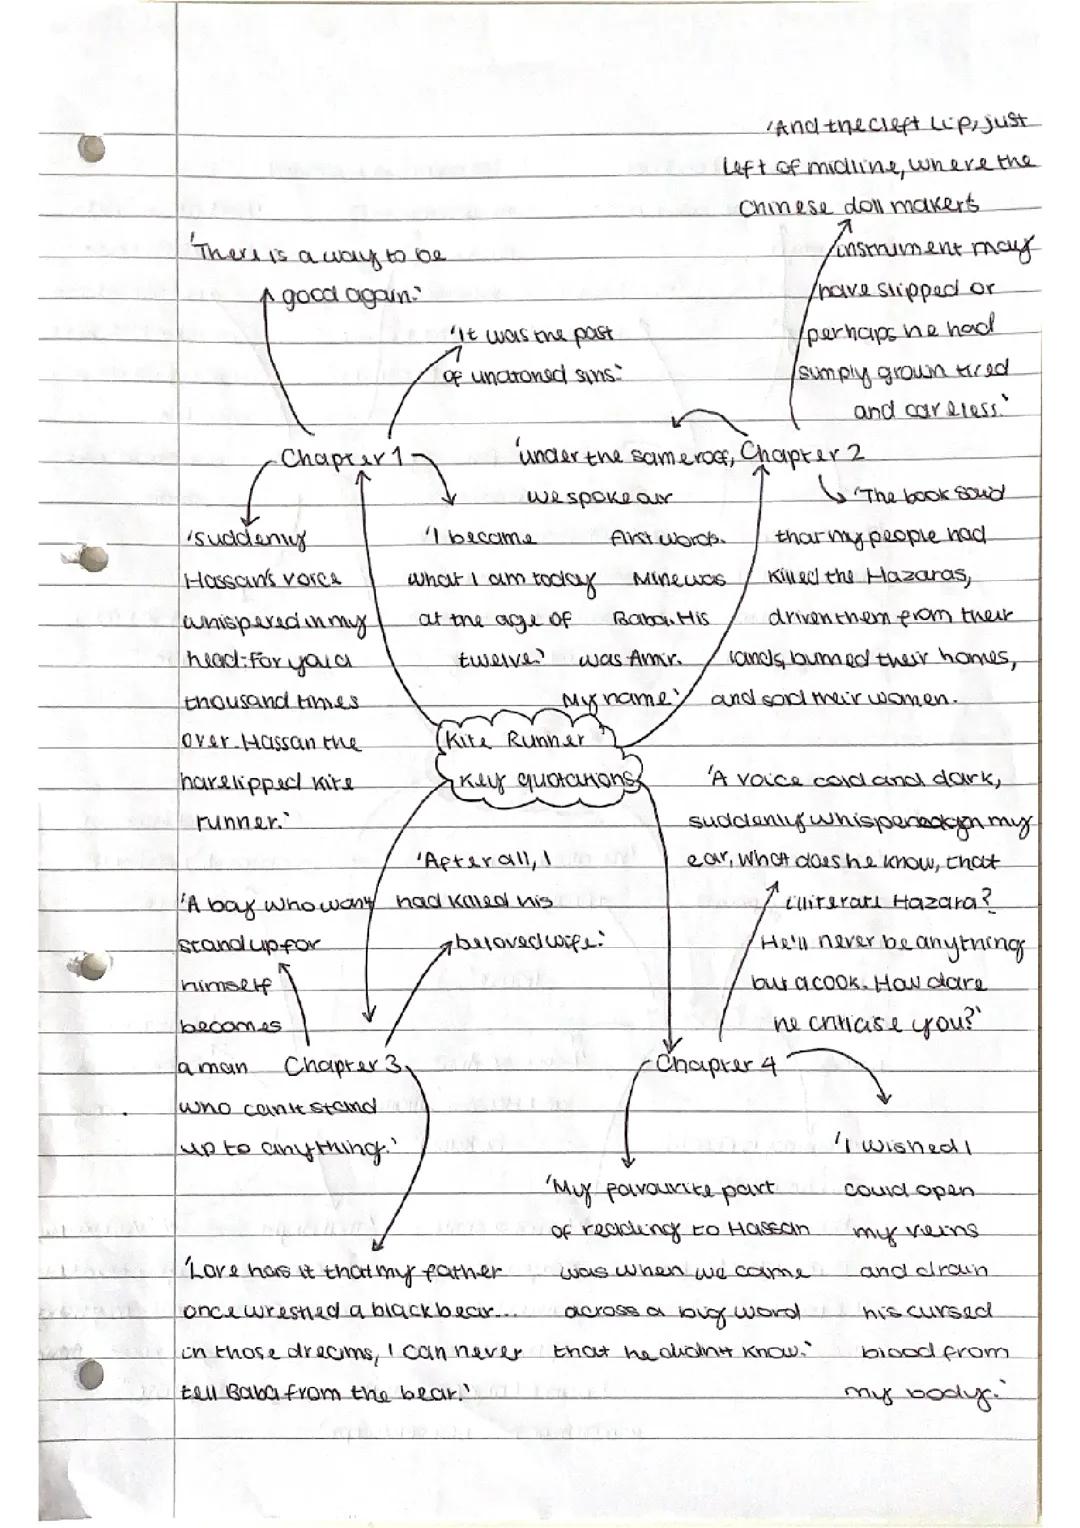 Kite Runner
Key quotations
Chapter 1
'There is a way to be
good again.'
'It was the past
of unatoned sins.'
'suddenly
Hassan's voice
whispered in my
head: for you a
thousand times
over. Hassan the
harelipped kite
runner.'
'I became
what I am today
at the age of
twelve.'
Chapter 2
'And the cleft lip, just
left of midline, where the
Chinese doll maker's
instrument may
have slipped or
perhaps he had
simply grown tired
and careless.'
'under the same roof,
we spoke our
first words.
Mine was
Baba. His
was Amir.
My name'
'The book said
that my people had
killed the Hazaras,
driven them from their
lands, burned their homes,
and sold their women.
Chapter 3
'A boy who won't
stand up for
himself
becomes
a man
who can't stand
up to anything.'
'After all, I
had killed his
beloved wife.'
'Lore has it that my father
once wrestled a black bear...
in those dreams, I can never
tell Baba from the bear.'
Chapter 4
'A voice cold and dark,
suddenly whispered in my
ear, what does he know, that
illiterate Hazara?
He'll never be anything
but a cook. How dare
he criticise you?'
'My favourite part
of reading to Hassan
was when we came
across a big word
that he didn't know.'
'I wished I
could open
my veins
and drain
his cursed
blood from
my body.'